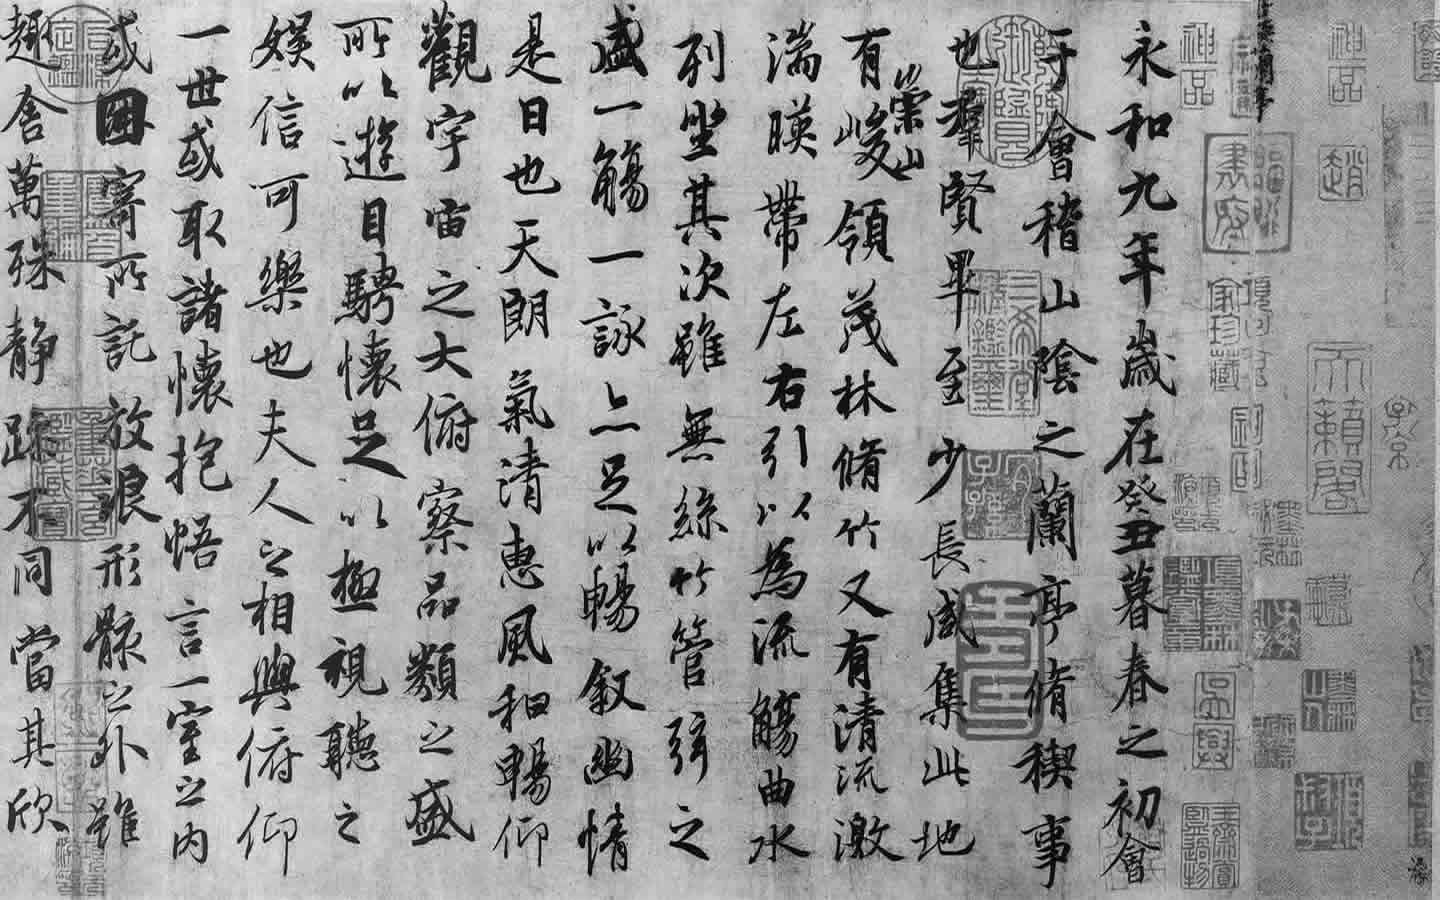 神品
趙
天籟閣
神品
家珍藏
永和九年歲在癸丑暮春之初會
于會稽山陰之蘭亭脩稧事
也羣賢畢至少長咸集此地
有崇山峻領茂林脩竹又有清流激
湍暎帶左右引以為流觴曲水
列坐其次雖無絲竹管弦之
盛一觴一詠亦足以暢敘幽情
是日也天朗氣清惠風和暢仰
觀宇宙之大俯察品類之盛
所以遊目騁懷足以極視聽之
娛信可樂也夫人之相與俯仰
一世或取諸懷抱悟言一室之內
或因寄所託放浪形骸之外雖
趣舍萬殊靜躁不同當其欣